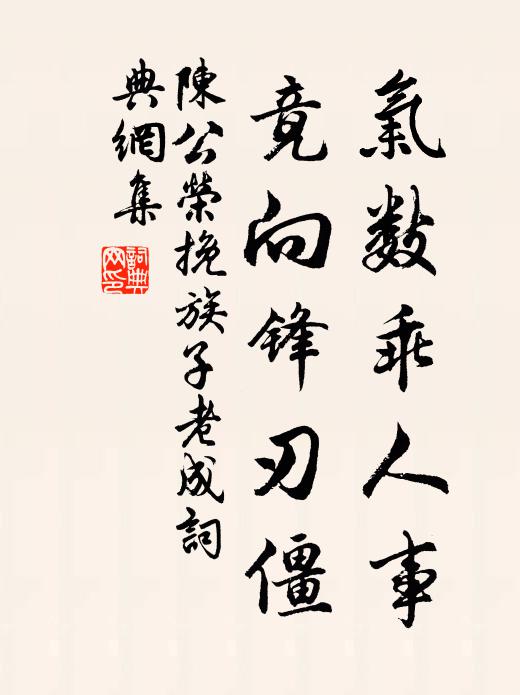 氣數乖人事
竟向鋒刃僵
陳公榮挽族子老成詞
典網集
詞典
网印